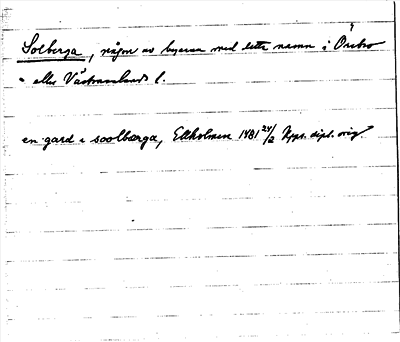 Solberga, någon av byarna med detta namn i Örebro
- eller Västmanlands l.
en gard i soolbærga, Ekholmen 1481 24/2 Upps. dipl. orig.